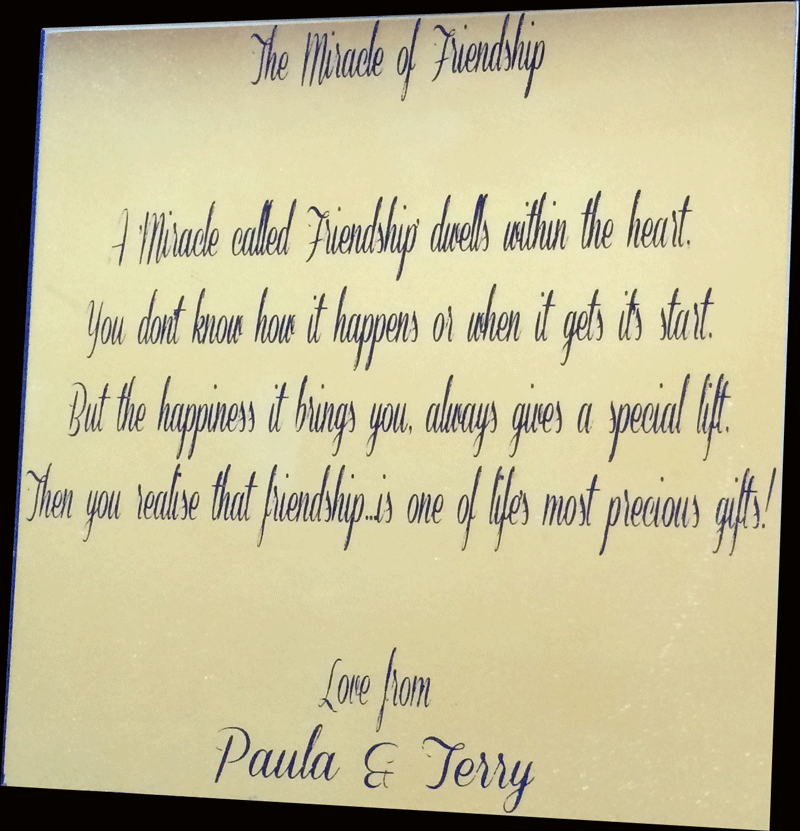 The Miracle of Friendship
A 'Miracle called Friendship' dwells within the heart.
You don't know how it happens or when it gets it's start.
But the happiness it brings you, always gives a special lift.
Then you realise that friendship...is one of life's most precious gifts!
Love from
Paula & Terry